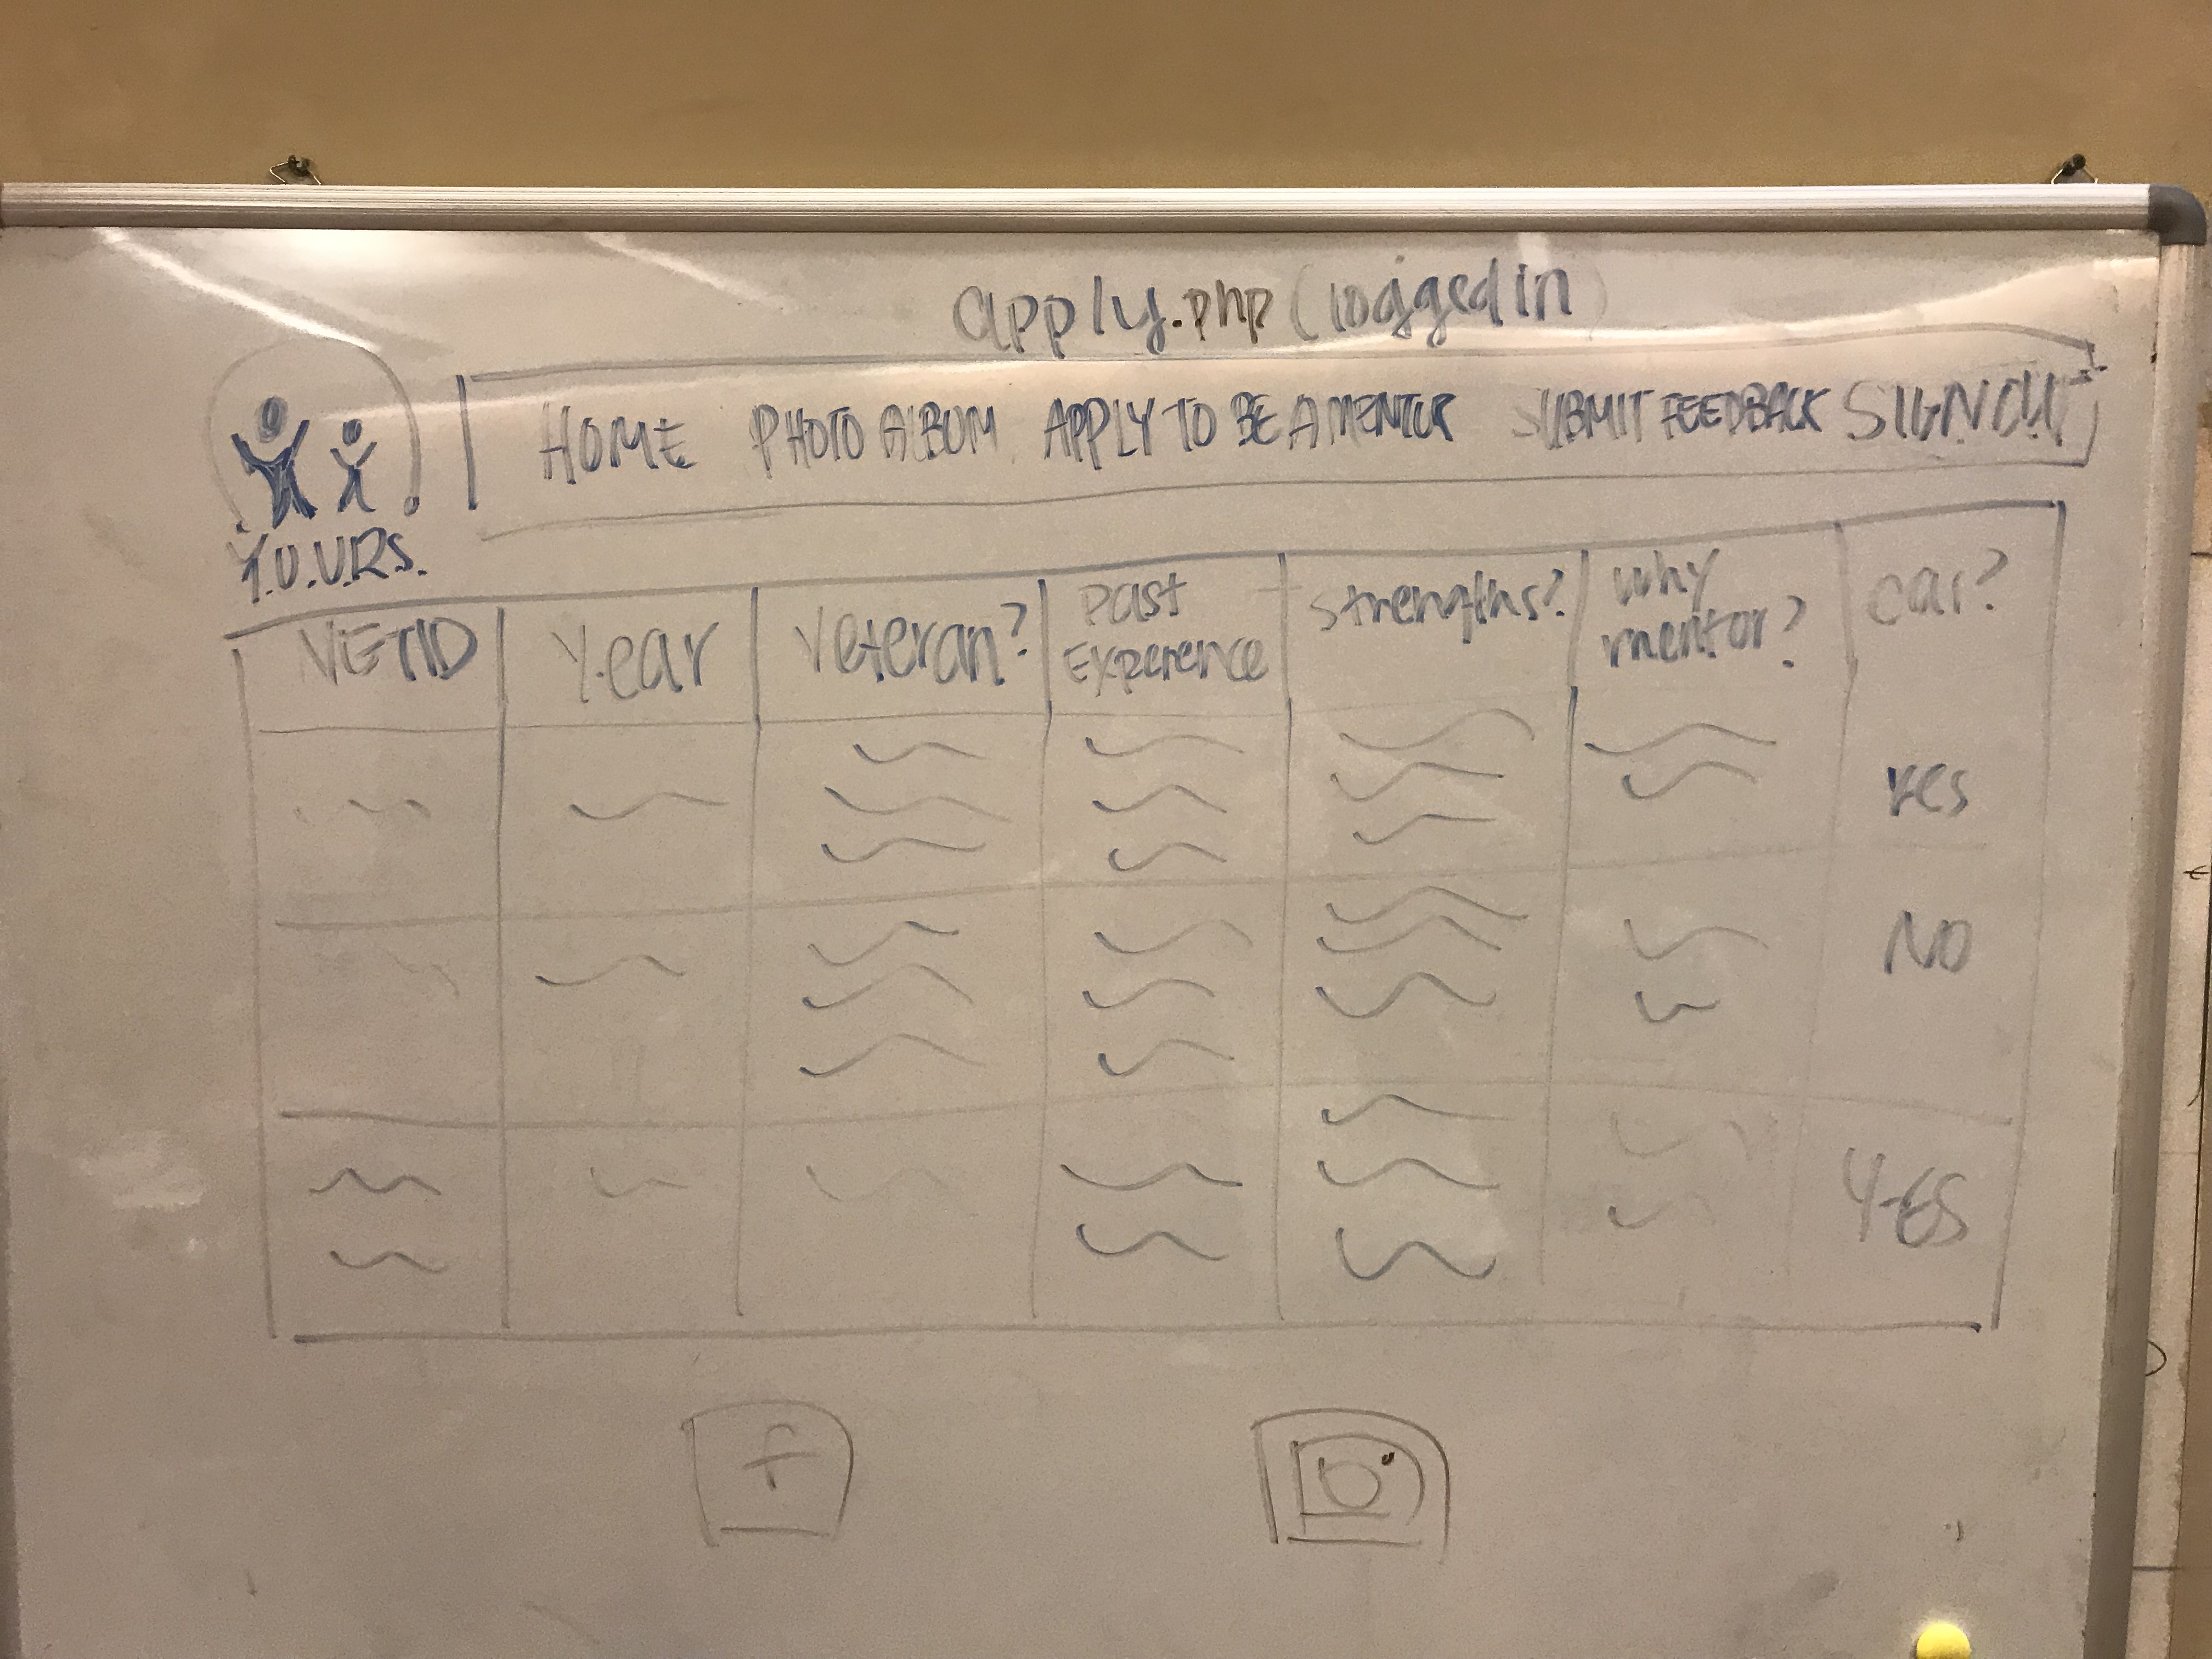 apply.php (logged in)
HOME PHOTO ALBUM APPLY TO BE A MENTOR SUBMIT FEEDBACK SIGNOUT
Y.O.U.R.S.
NETID Year Veteran? Past Experence Strengths? Why mentor? car?
Yes
NO
Yes
f